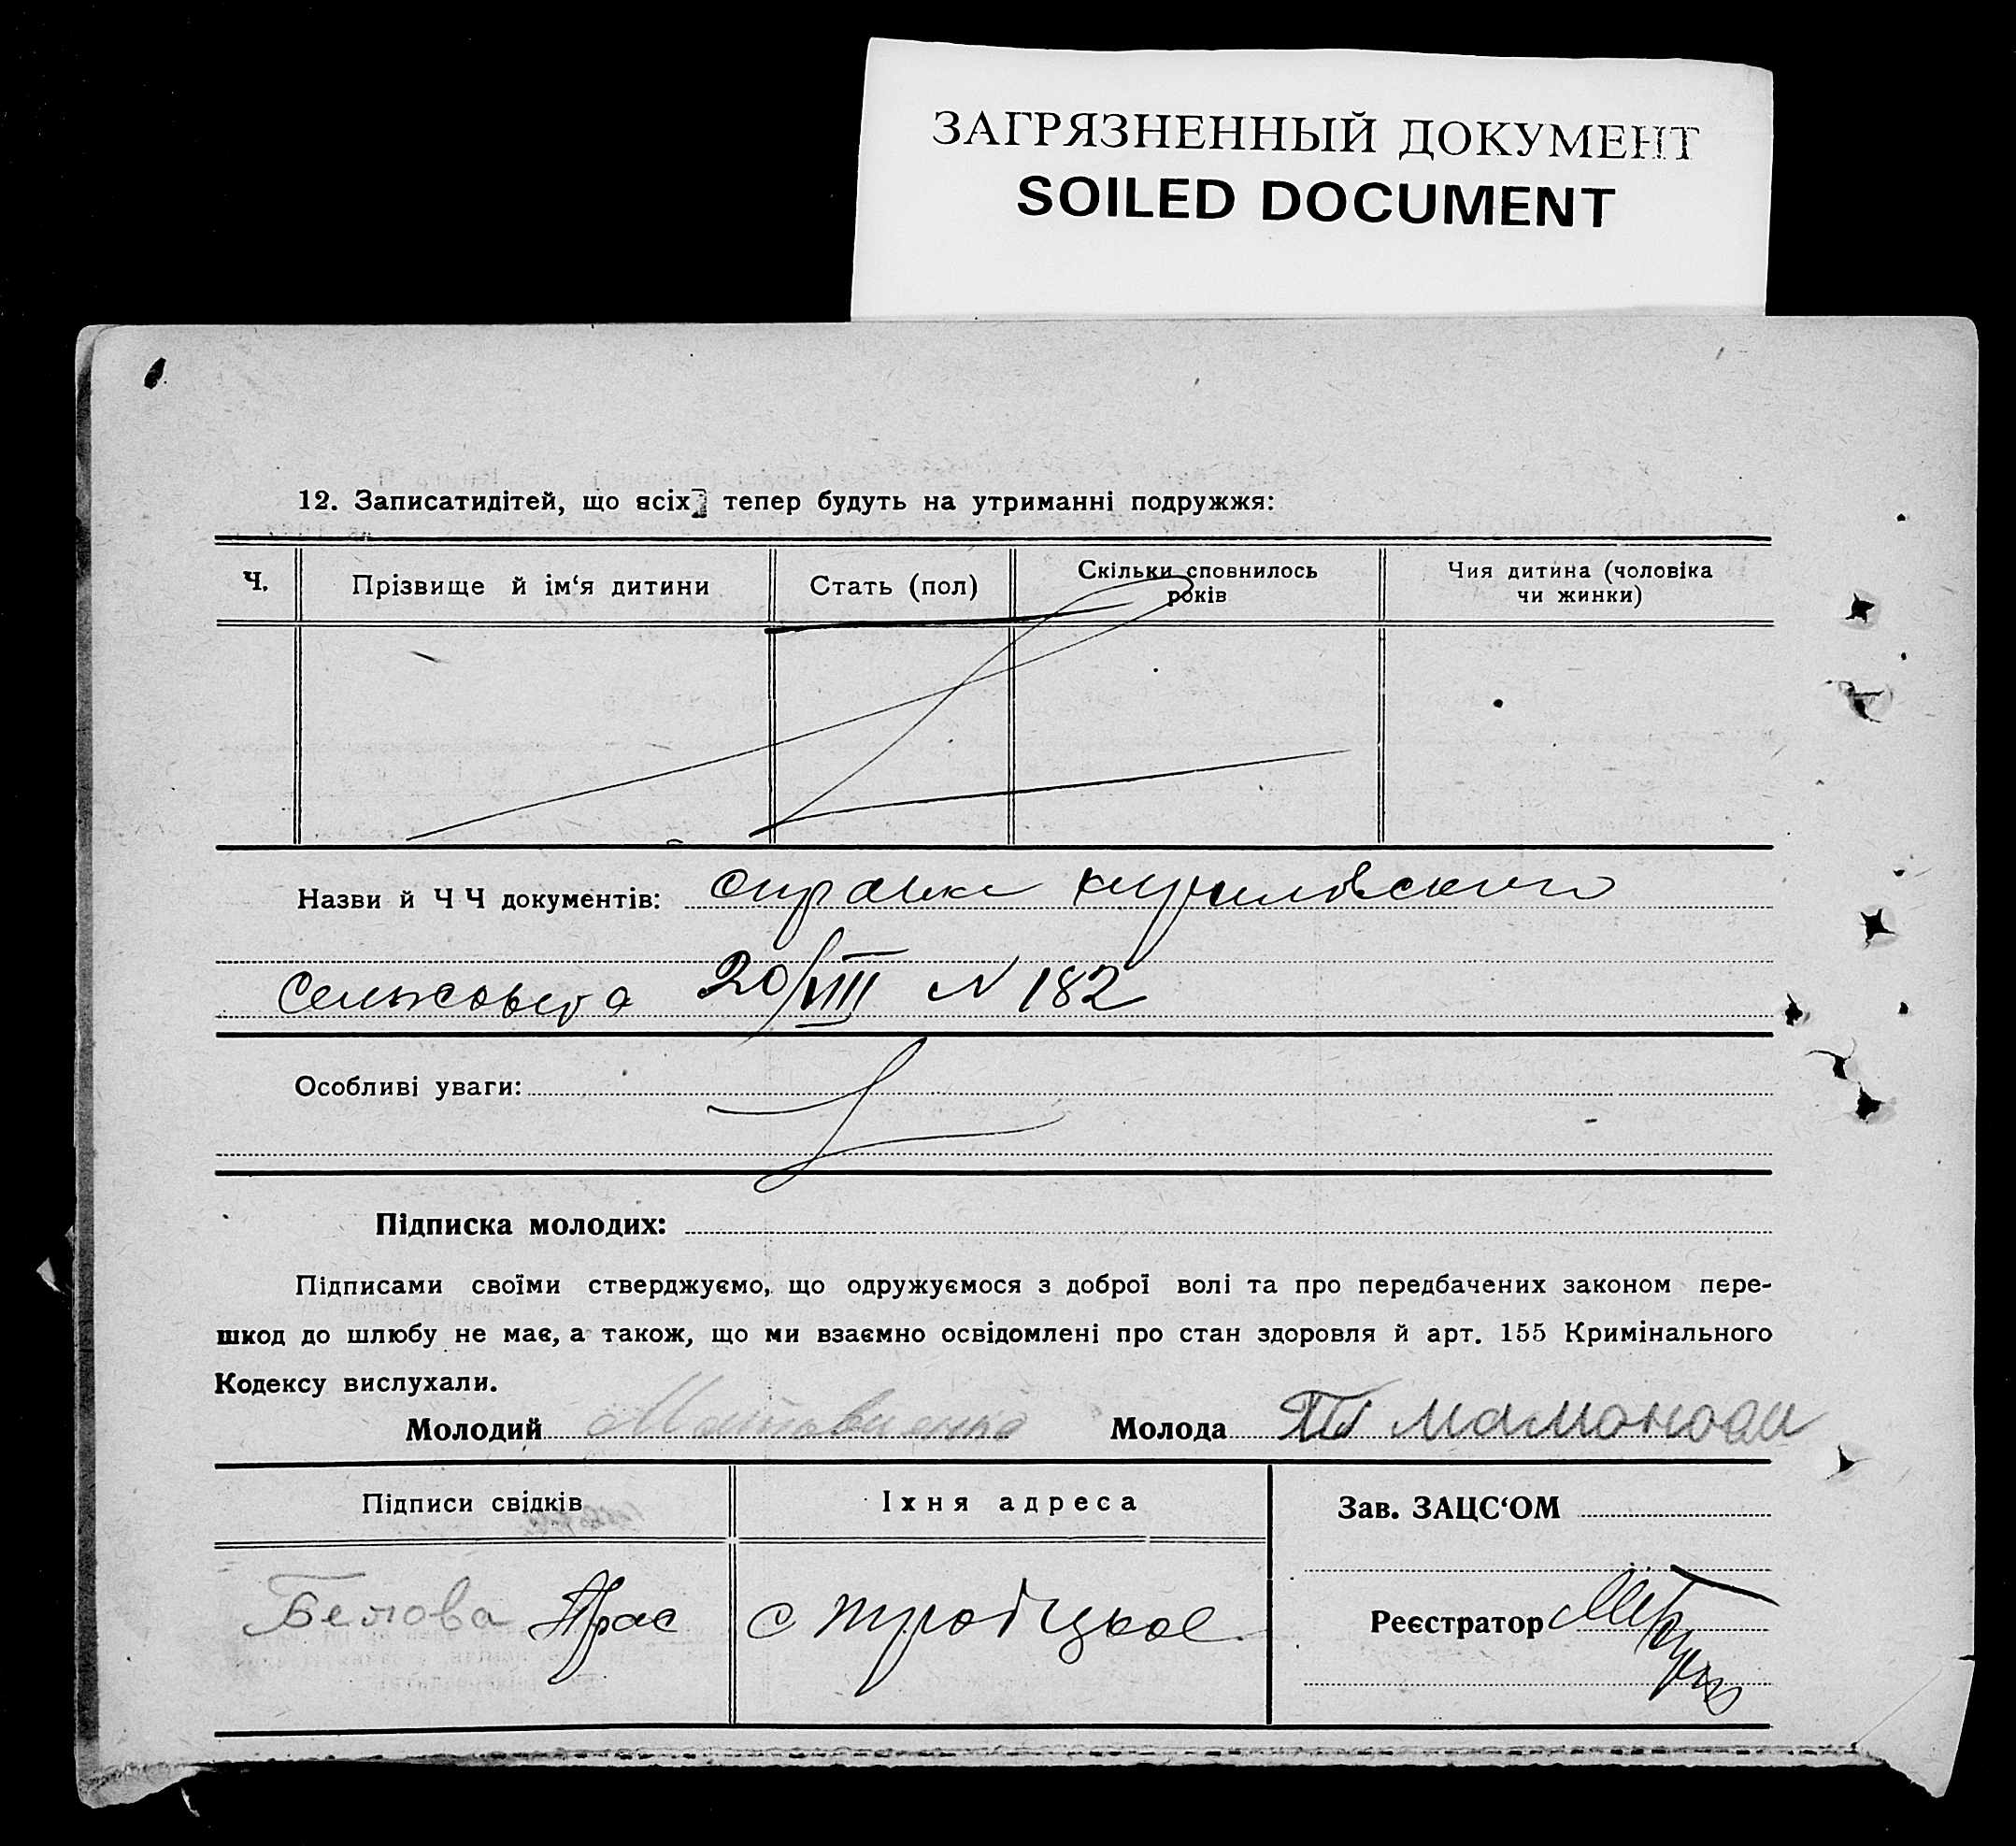 ЗАГРЯЗНЕННЫЙ ДОКУМЕНТ
SOILED DOCUMENT
12. Записатидітей, що всіх тепер будуть на утриманні подружжя:
Ч. Прізвище й ім‘я дитини Стать (пол) Скільки сповнилось років Чия дитина (чоловіка чи жинки)
Назви й Ч Ч документів: справка
20/VIII N 182
Особливі уваги:
Підписка молодих:
Підписами своїми стверджуємо, що одружуємося з доброї волі та про передбачених законом пере-
шкод до шлюбу не має, а також, що ми взаємно освідомлені про стан здоровля й арт. 155 Кримінального
Кодексу вислухали.
Молодий Молода
Підписи свідків Їхня адреса Зав. ЗАЦС‘ОМ
Белова Прас с Реєстратор